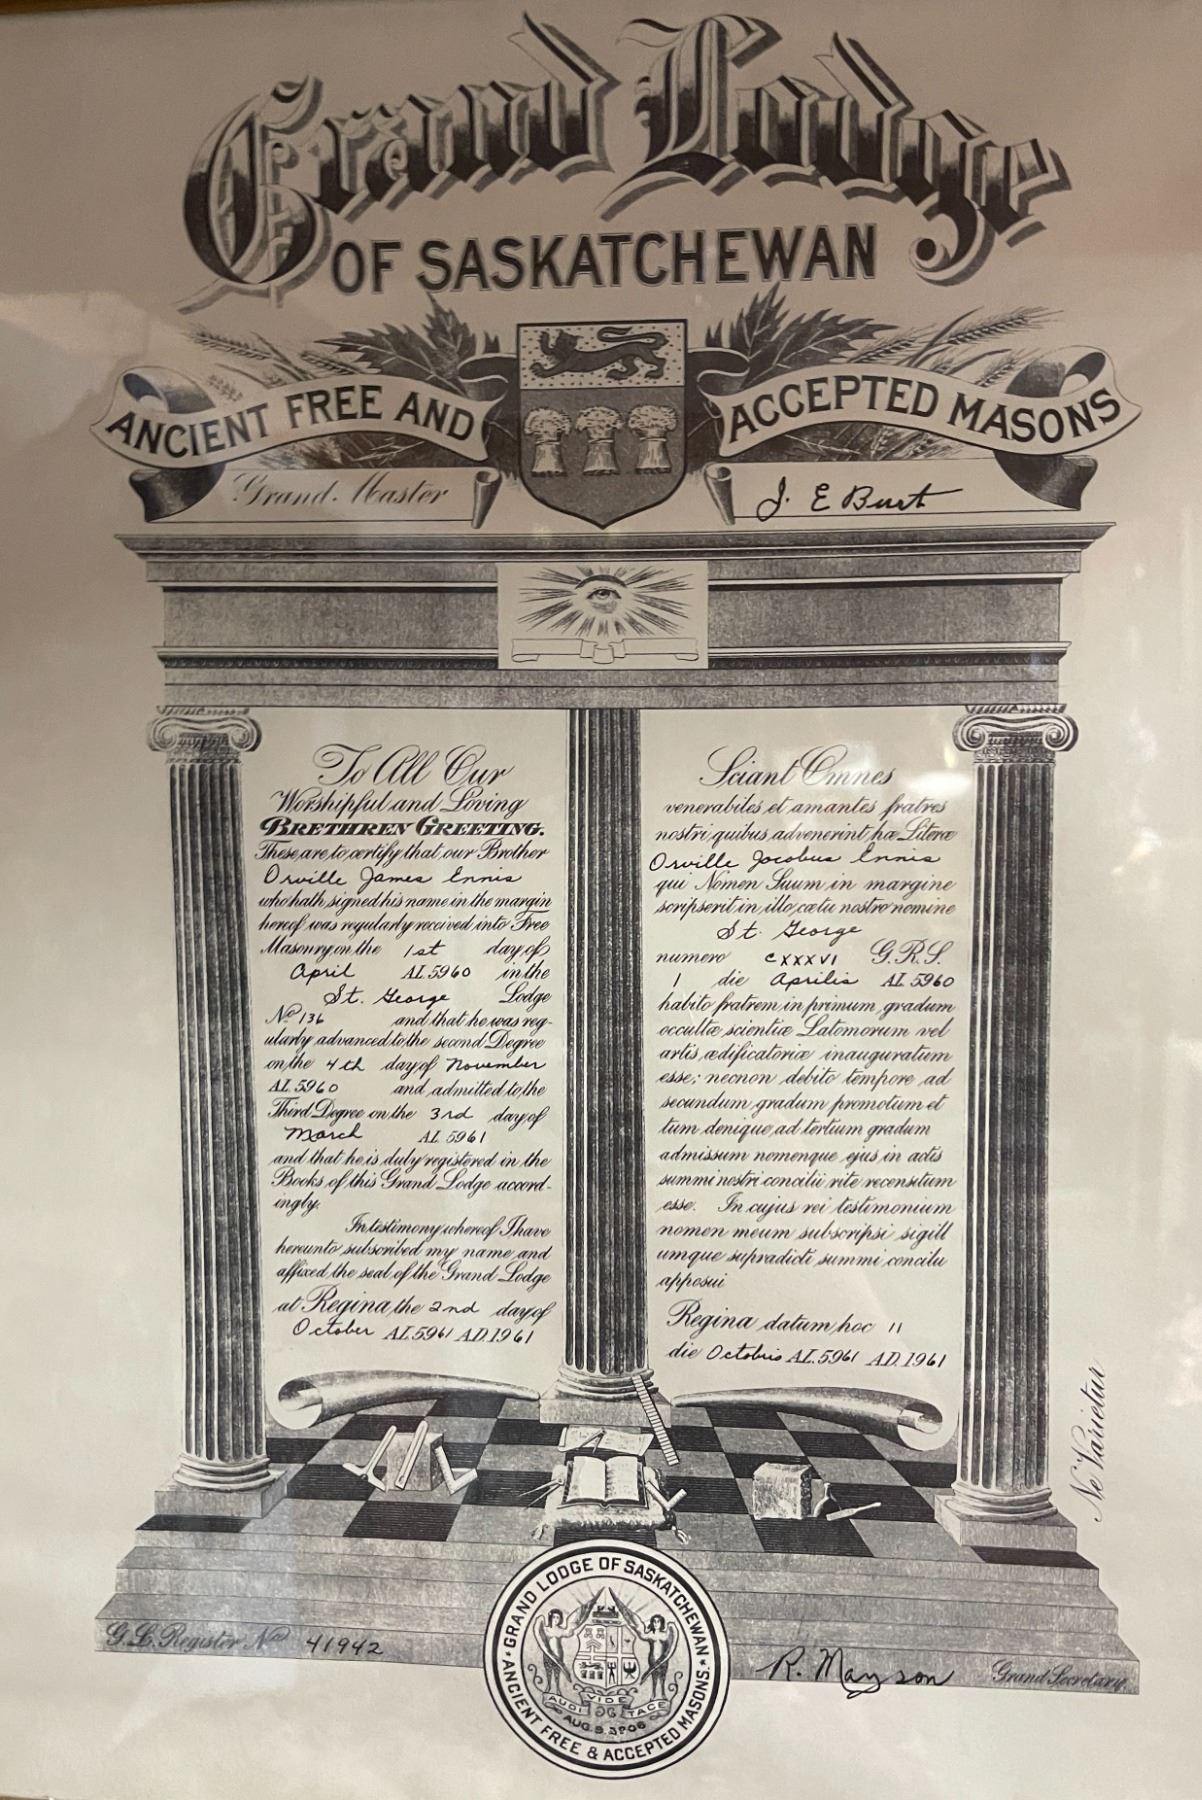 Grand Lodge
OF SASKATCHEWAN
ANCIENT FREE AND ACCEPTED MASONS
Grand Master
J. E Burt
To All Our
Worshipful and Loving
BRETHREN GREETING.
These are to certify that our Brother
Orville James Ennis
who hath signed his name in the margin
hereof was regularly received into Free
Masonry on the 1st day of
April AL 5960 in the
St. George Lodge
No 136 and that he was reg-
ularly advanced to the second Degree
on the 4th day of November
AL 5960 and admitted to the
Third Degree on the 3rd day of
March AL 5961
and that he is duly registered in the
Books of this Grand Lodge accord-
ingly.
In testimony whereof I have
hereunto subscribed my name and
affixed the seal of the Grand Lodge
at Regina the 2nd day of
October AL 5961 A.D. 1961
Sciant Omnes
venerabiles et amantes fratres
nostri quibus advenerint hæ Literæ
Orville Jacobus Ennis
qui Nomen Suum in margine
scripserit in illo cætu nostro nomine
St. George
numero CXXXVI G.R.S.
1 die Aprilis AL 5960
habito fratrem in primum gradum
occultæ scientiæ Latomorum vel
artis ædificatoriæ inauguratum
esse; necnon debito tempore ad
secundum gradum promotum et
tum denique ad tertium gradum
admissum nomenque ejus in actis
summi nostri concilii rite recensitum
esse. In cujus rei testimonium
nomen meum subscripsi sigill
umque supradicti summi concilu
apposui
Regina datum hoc 11
die Octobris AL 5961 A.D. 1961
Ne Varietur
G.L. Register No 41942
R. Mayson
Grand Secretary.
GRAND LODGE OF SASKATCHEWAN
ANCIENT FREE & ACCEPTED MASONS.
AUDI VIDE TACE
AUG. 9. 1906